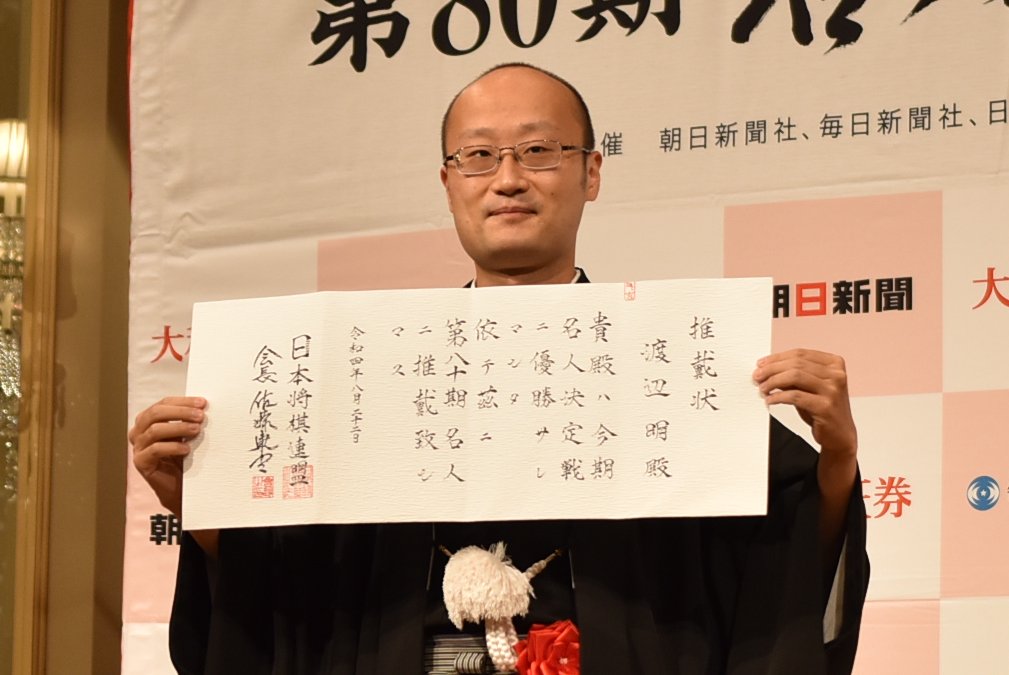 第80期
催 朝日新聞社、毎日新聞社、日
朝日新聞
大
大
証券
朝
推戴状
渡辺明殿
貴殿ハ今期
名人決定戦
ニ優勝サレ
マシタ
依テ茲ニ
第八十期名人
ニ推戴致シ
マス
令和四年八月二十二日
日本将棋連盟
会長 佐藤康光